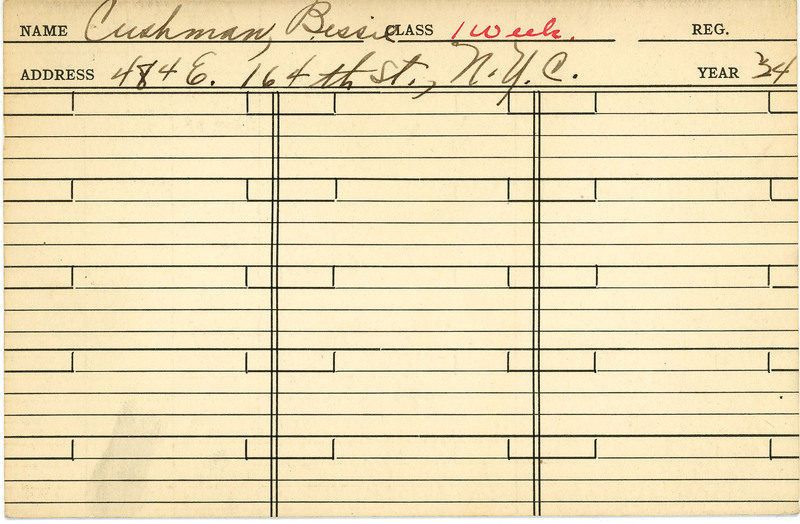 NAME Cushman, Bessie CLASS 1 Week. REG.
ADDRESS 484 E. 164th St., N.Y.C. YEAR 34